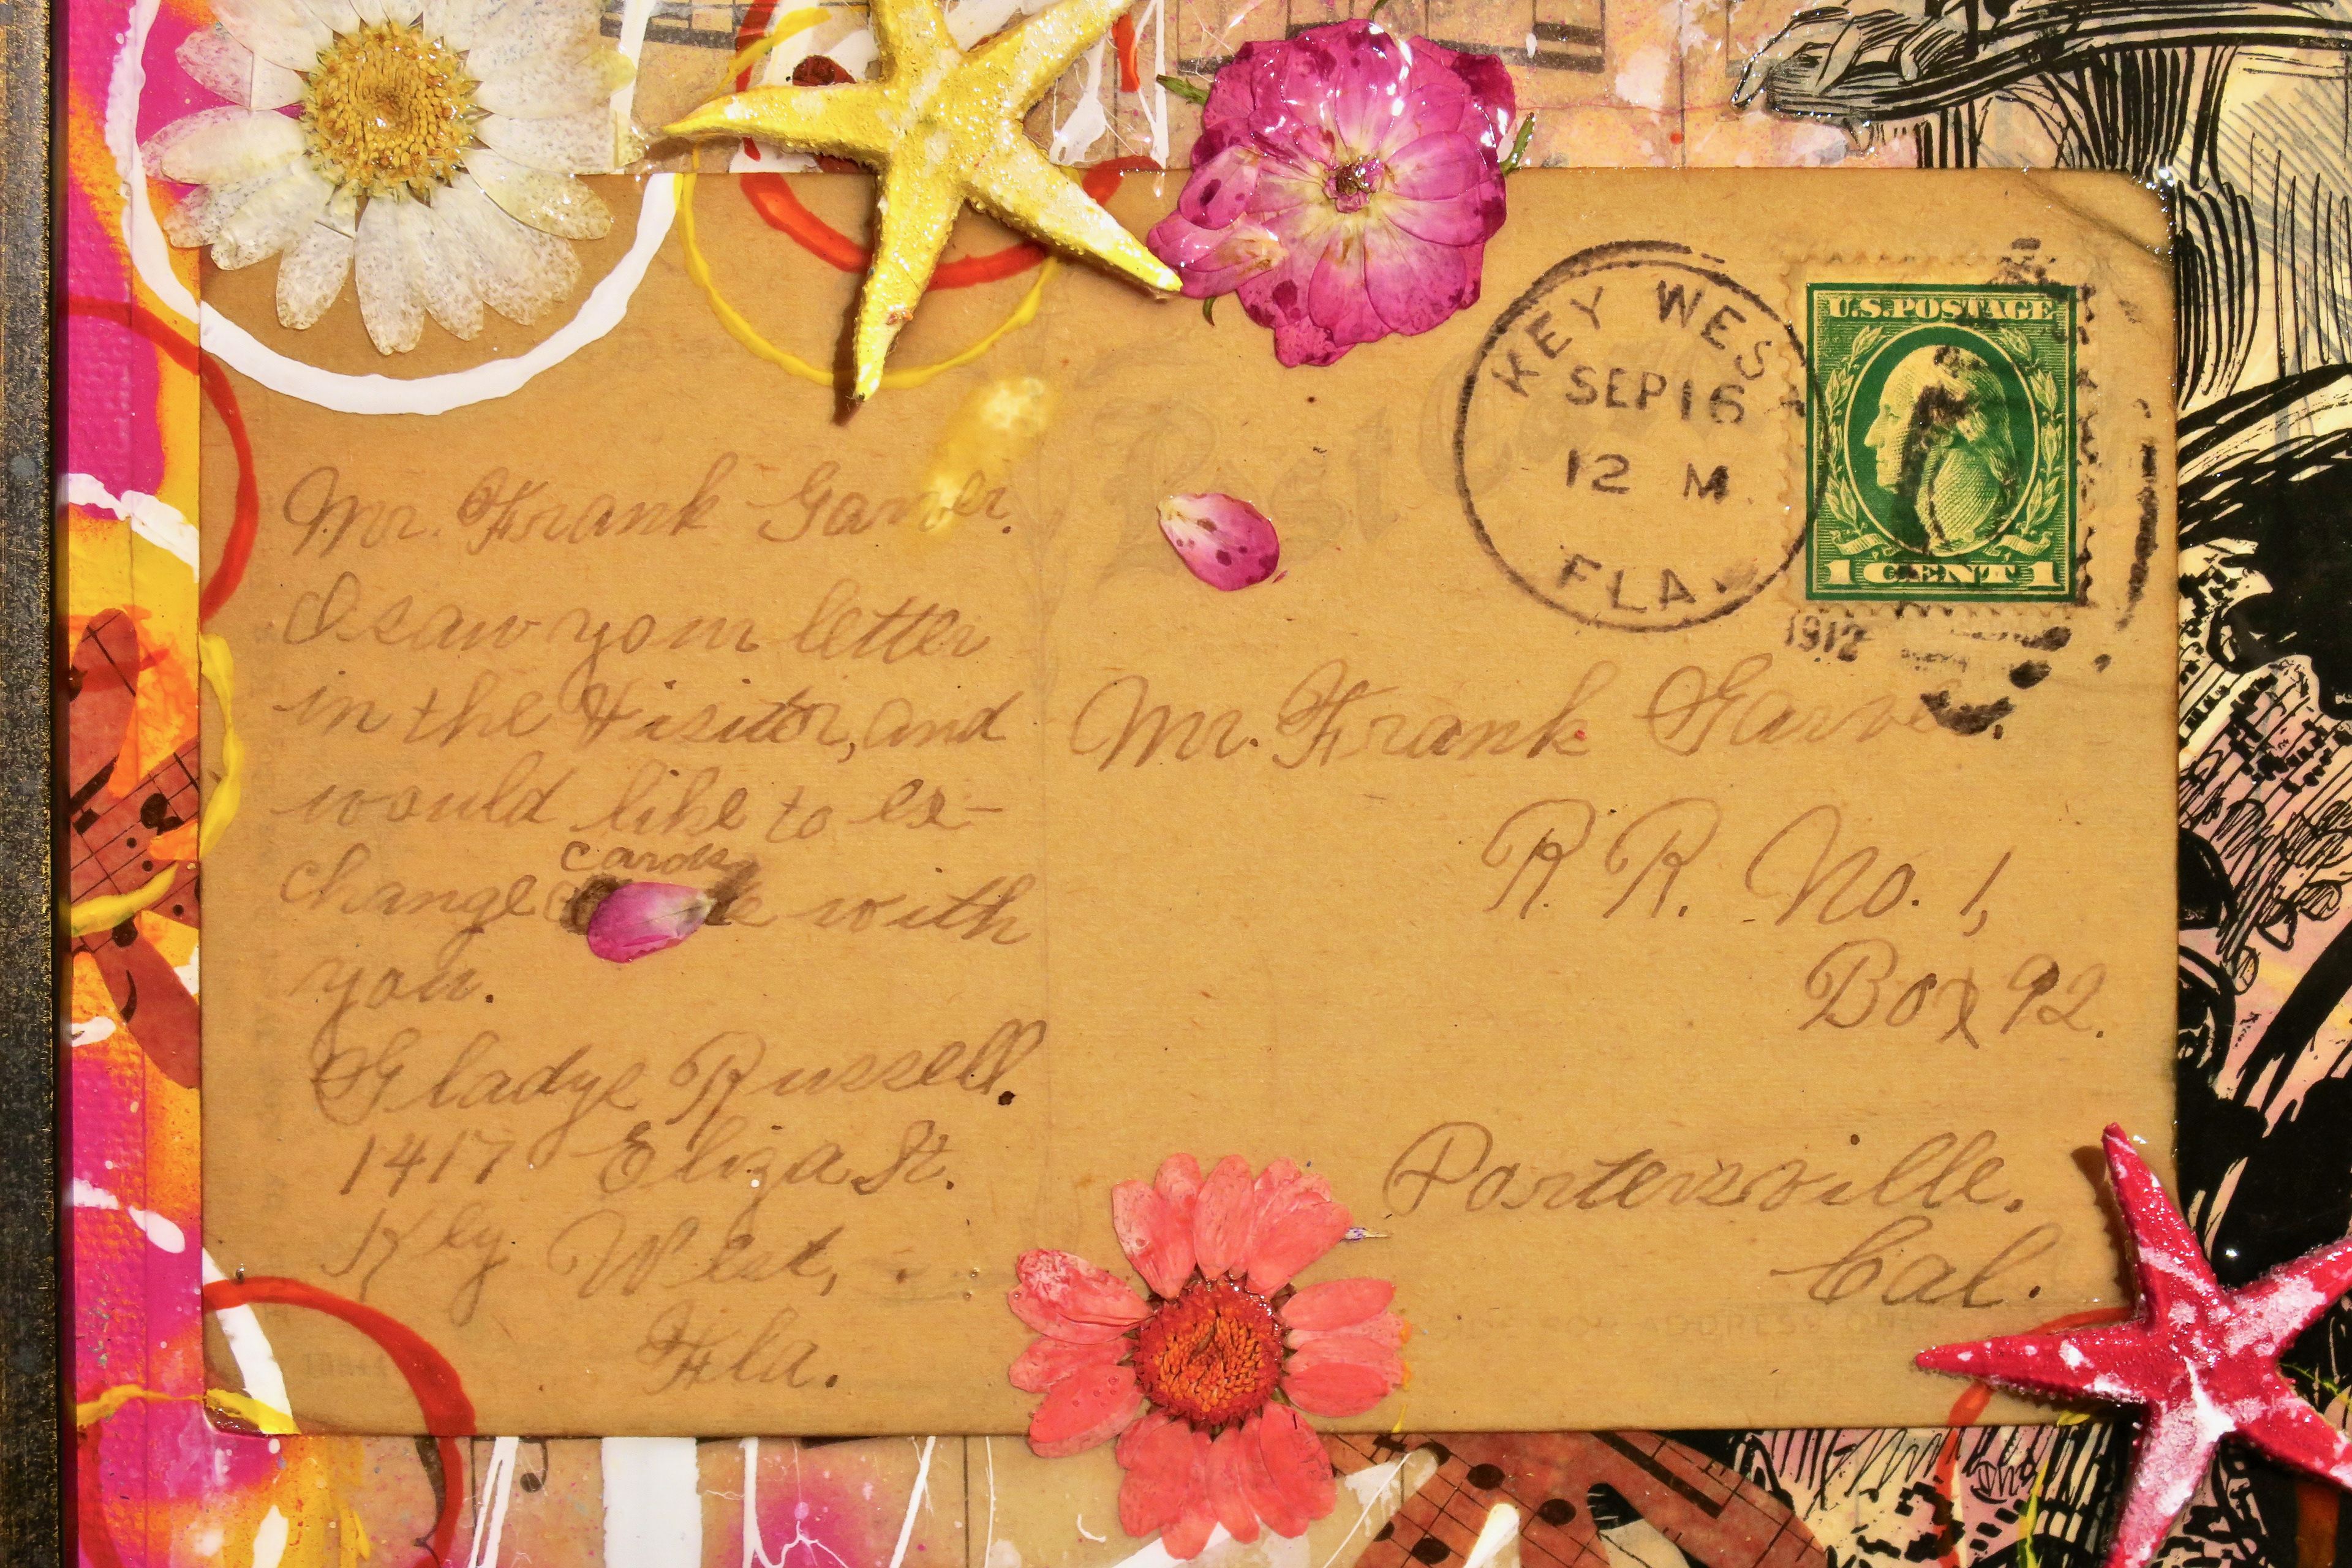 Mr. Frank Garver.
I saw your letter
in the Visitor, and
would like to ex-
change cards with
you.
Gladys Russell.
1417 Eliza St.
Key West,
Fla.
Post
KEY WEST
SEP 16
12 M
FLA.
1912
U.S. POSTAGE
1 CENT 1
Mr. Frank Garver.
R. R. No. 1,
Box 92.
Portersville.
Cal.
FOR ADDRESS ONLY